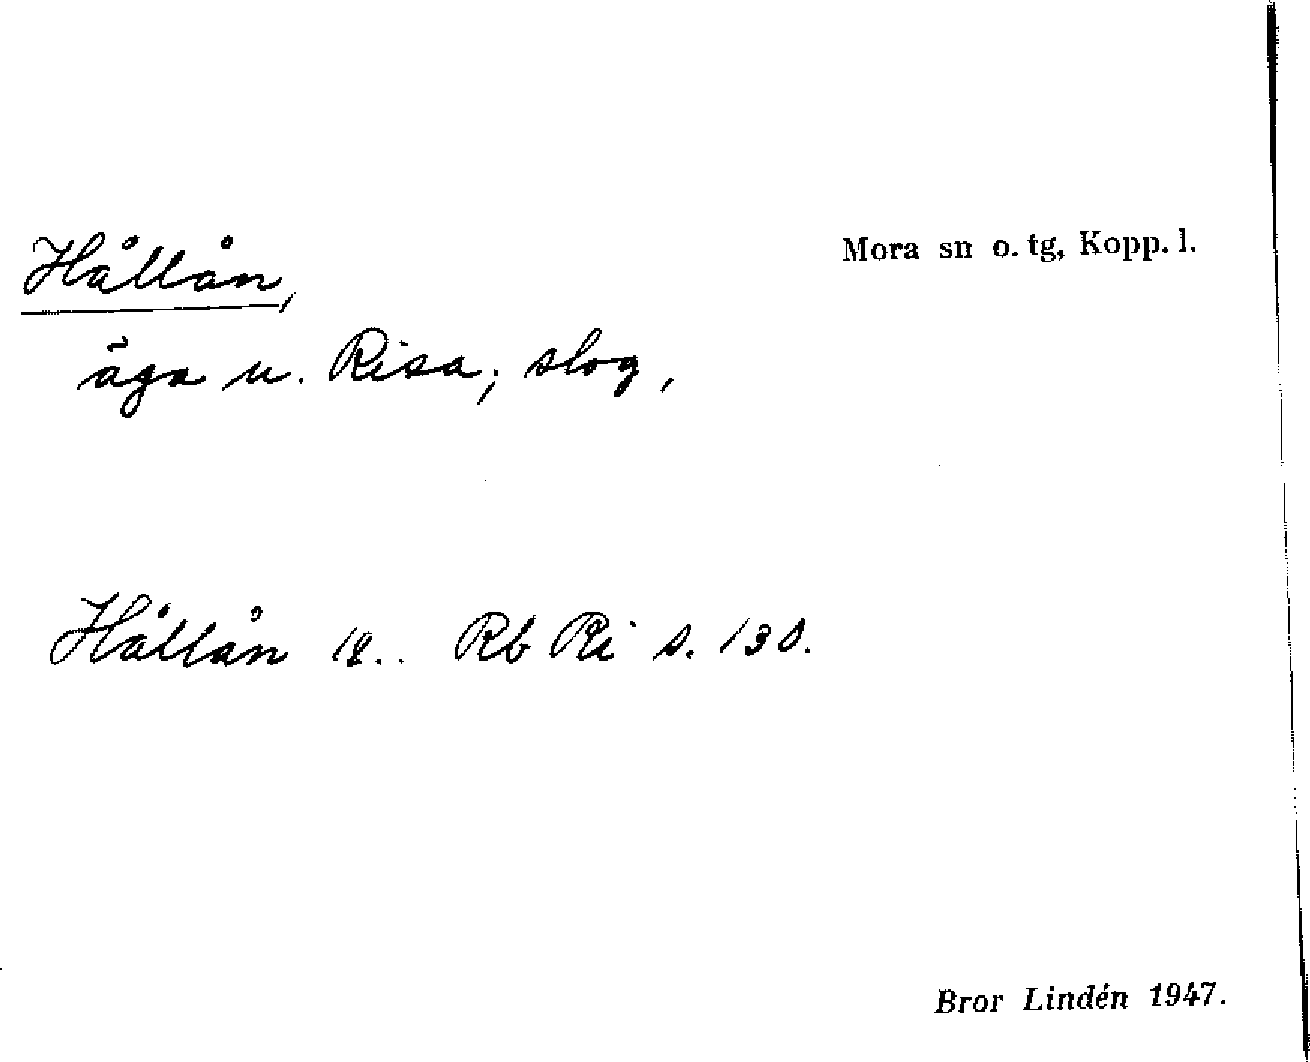 Hållån,
Mora sn o. tg, Kopp. l.
äga u. Risa; slog,
Hållån 18.. Rb Ri s. 130.
Bror Lindén 1947.